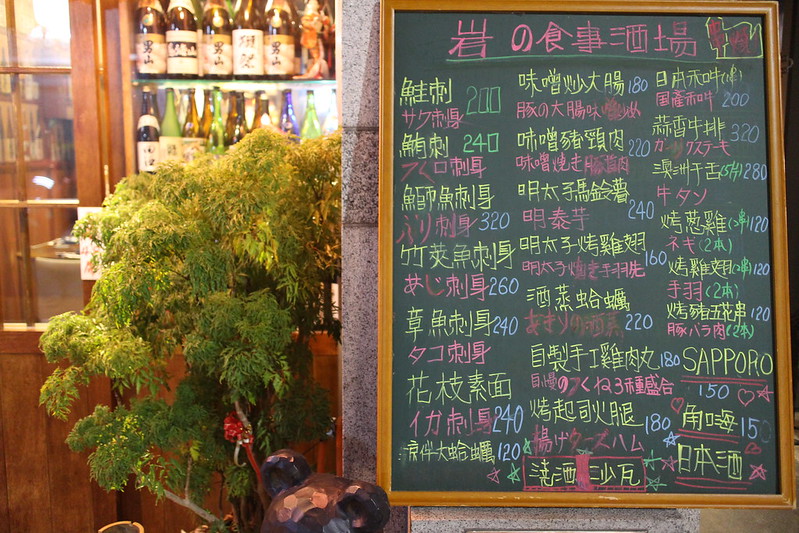 岩の食事酒場
鮭刺 200
サケ刺身
鮪刺 240
刺身
鰤魚刺身
ぶり刺身 320
竹莢魚刺身
めじ刺身 260
章魚刺身 240
タコ刺身
花枝素面
イカ刺身 240
涼伴大蛤蠣 120
味噌炒大腸 180
豚の大腸味噌炒め
味噌豬頸肉 220
味噌焼き豚頸肉
明太子馬鈴薯 240
明泰芋
明太子烤雞翅 160
明太子焼き手羽先
酒蒸蛤蠣
あさりの酒蒸 220
自製手工雞肉丸 180
自慢のつくね3種盛合
烤起司火腿 180
揚げチーズハム
清酒 沙瓦
日本和牛(1串)
国産和牛 200
蒜香牛排 320
ガーリックステーキ
澳洲牛舌(5片) 280
牛タン
烤葱雞(2串) 120
ネギ(2本)
烤雞翅(2串) 120
手羽(2本)
烤豬五花串 120
豚バラ肉(2本)
SAPPORO
150
角嗨 150
日本酒
男山
男山
獺
男山